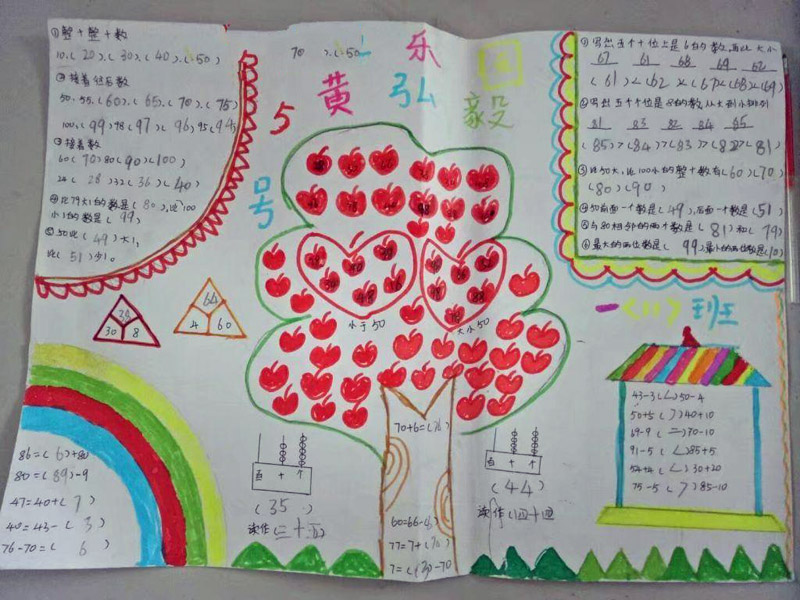 ①整十整十数
10、(20)、(30)、(40)、(50)
②接着往后数
50、55、(60)、(65)、(70)、(75)
100、(99)98(97)、(96)95(94)
③接着数
60(70)80(90)(100)
24(28)32(36)(40)
④比79大1的数是(80),比100
小1的数是(99)
⑤50比(49)大1,
比(51)少1。
乐
黄弘毅
5
号
①写出五个十位上是6的数,再比大小
67 61 68 69 62
(61)<(62)<(67)<(68)<(69)
81 83 82 84 85
(85)>(84)>(83)>(82)>(81)
③比50大,比100小的整十数有(60)(70)
(80)(90)
④50前面一个数是(49),后面一个数是(51)
⑤与80相邻的两个数是(81)和(79)
⑥最大的两位数是(99)最小的两位数是(10)
一(11)班
小于50
大于50
38
30 8
64
4 60
43-3(<)50-4
50+5(>)40+10
69-9(=)70-10
91-5(<)85+5
54+4(<)30+20
75-5(>)85-10
86=(6)+80
80=(89)-9
47=40+(7)
40=43-(3)
76-70=(6)
百十个
(35)
读作(三十五)
70+6=(76)
60=66-(6)
77=7+(70)
百十个
(44)
读作(四十四